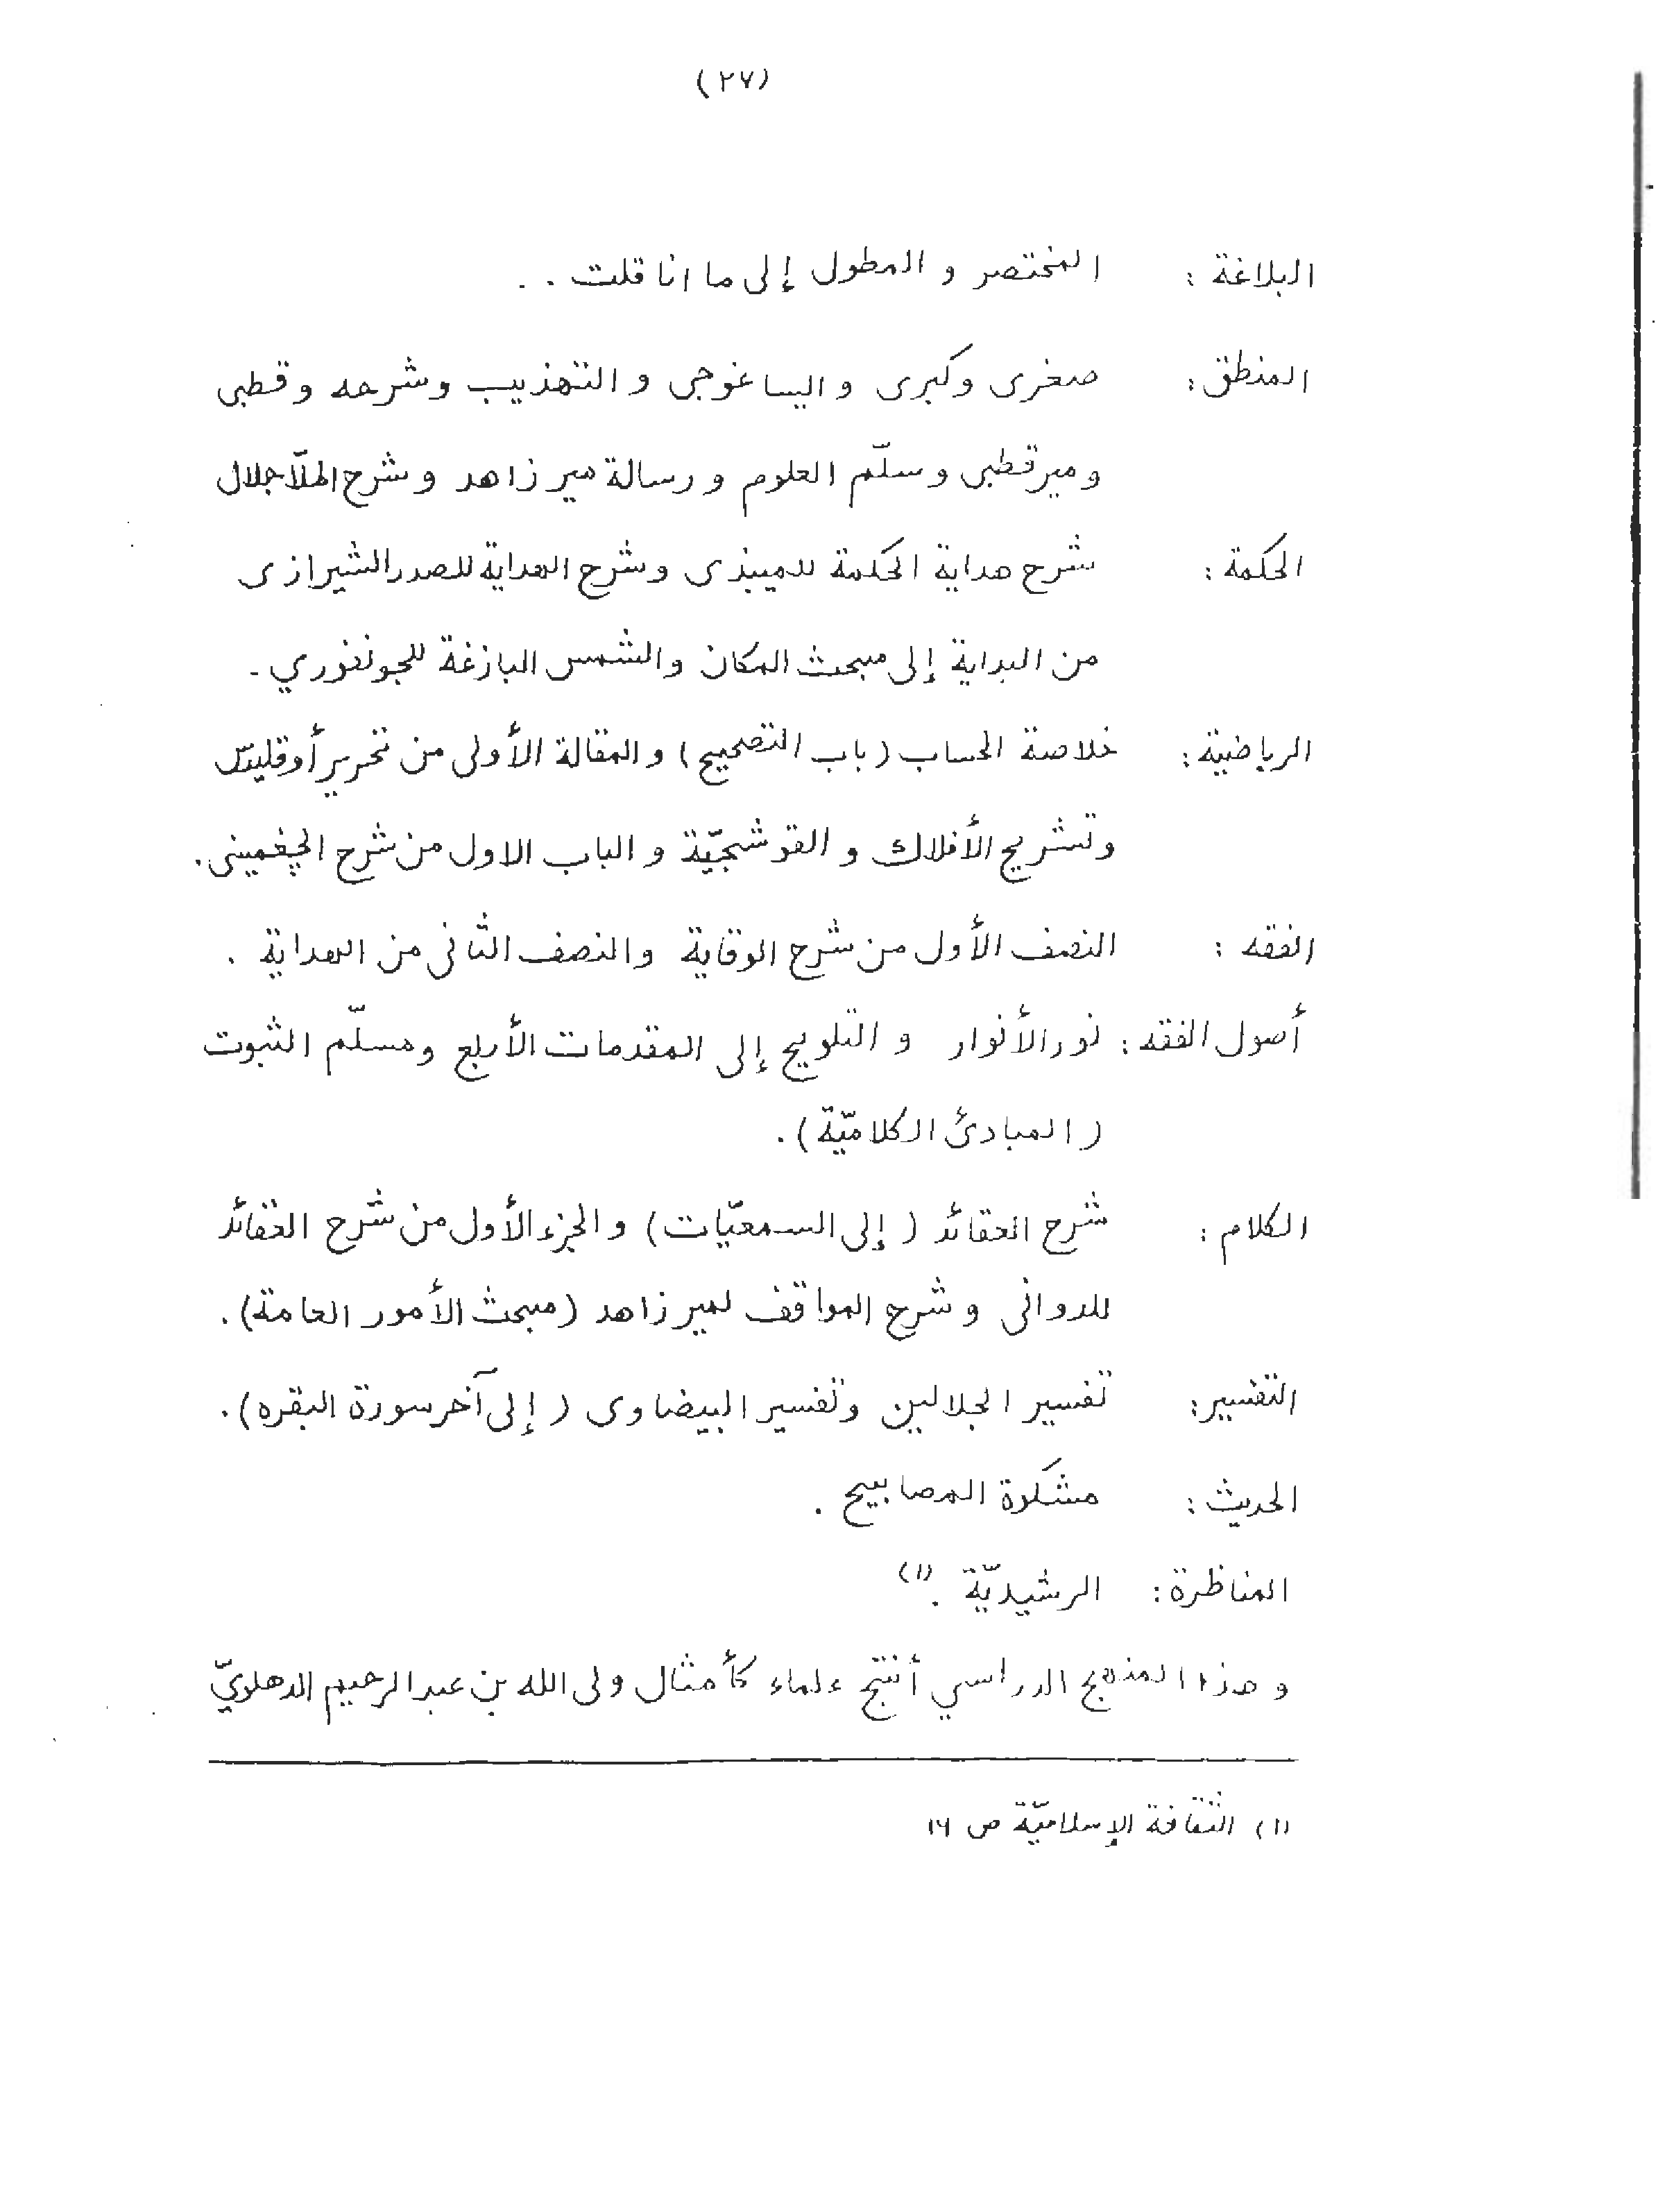 (٢٧)
البلاغة : المختصر و المطول إلى ما انا قلت . .
المنطق : صغرى وكبرى و اليساغوجى و التهذيب وشرحه و قطبى
و ميرقطبى و سلّم العلوم و رسالة مير زاهد و شرح الملّا جلال
الحكمة : شرح هداية الحكمة للميبذى وشرح الهداية للصدر الشيرازى
من البداية إلى مبحث المكان والشمس البازغة للجونفوري -
الرياضية : خلاصة الحساب (باب التصحيح) و المقالة الأولى من تحرير أوقليدس
وتشريح الأفلاك و القوشجيّة و الباب الاول من شرح الچغمينى .
الفقه : النصف الأول من شرح الوقاية والنصف الثانى من الهداية .
أصول الفقه : نور الأنوار و التلويح إلى المقدمات الأربع ومسلّم الثبوت
(المبادئ الكلاميّة) .
الكلام : شرح العقائد (إلى السمعيّات) و الجزء الأول من شرح العقائد
للدوانى و شرح المواقف لمير زاهد (مبحث الأمور العامة) .
التفسير : تفسير الجلالين وتفسير البيضاوى (إلى آخر سورة البقره) .
الحديث : مشكوة المصابيح .
المناظرة : الرشيديّة . (١)
و هذا المنهج الدراسي أنتج علماء كأمثال ولى الله بن عبد الرحيم الدهلويّ
(١) الثقافة الإسلاميّة ص ١٦